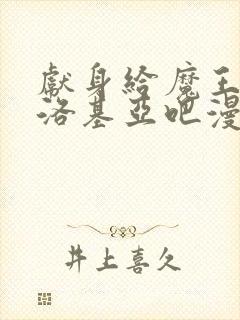 獻身給魔王
洛基亞吧漫
井上喜久